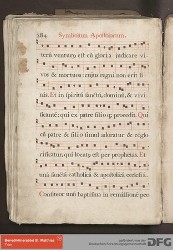 184 Symbolum Apostolorum.
iterú venturus est cú gloria iudicare vi
vos & mortuos: cuius regni non erit fi
nis. Et in spiritú sanctú, dominú, & vivi
ficanté: qui ex patre filioq; procedit. Qui
cú patre & filio simul adoratur & cóglo
rificatur, qui locutus est per prophetas. Et
uná sanctá catholicá & apostolicá ecclesiá.
Confiteor unú baptisma in remissioné pec
DFG